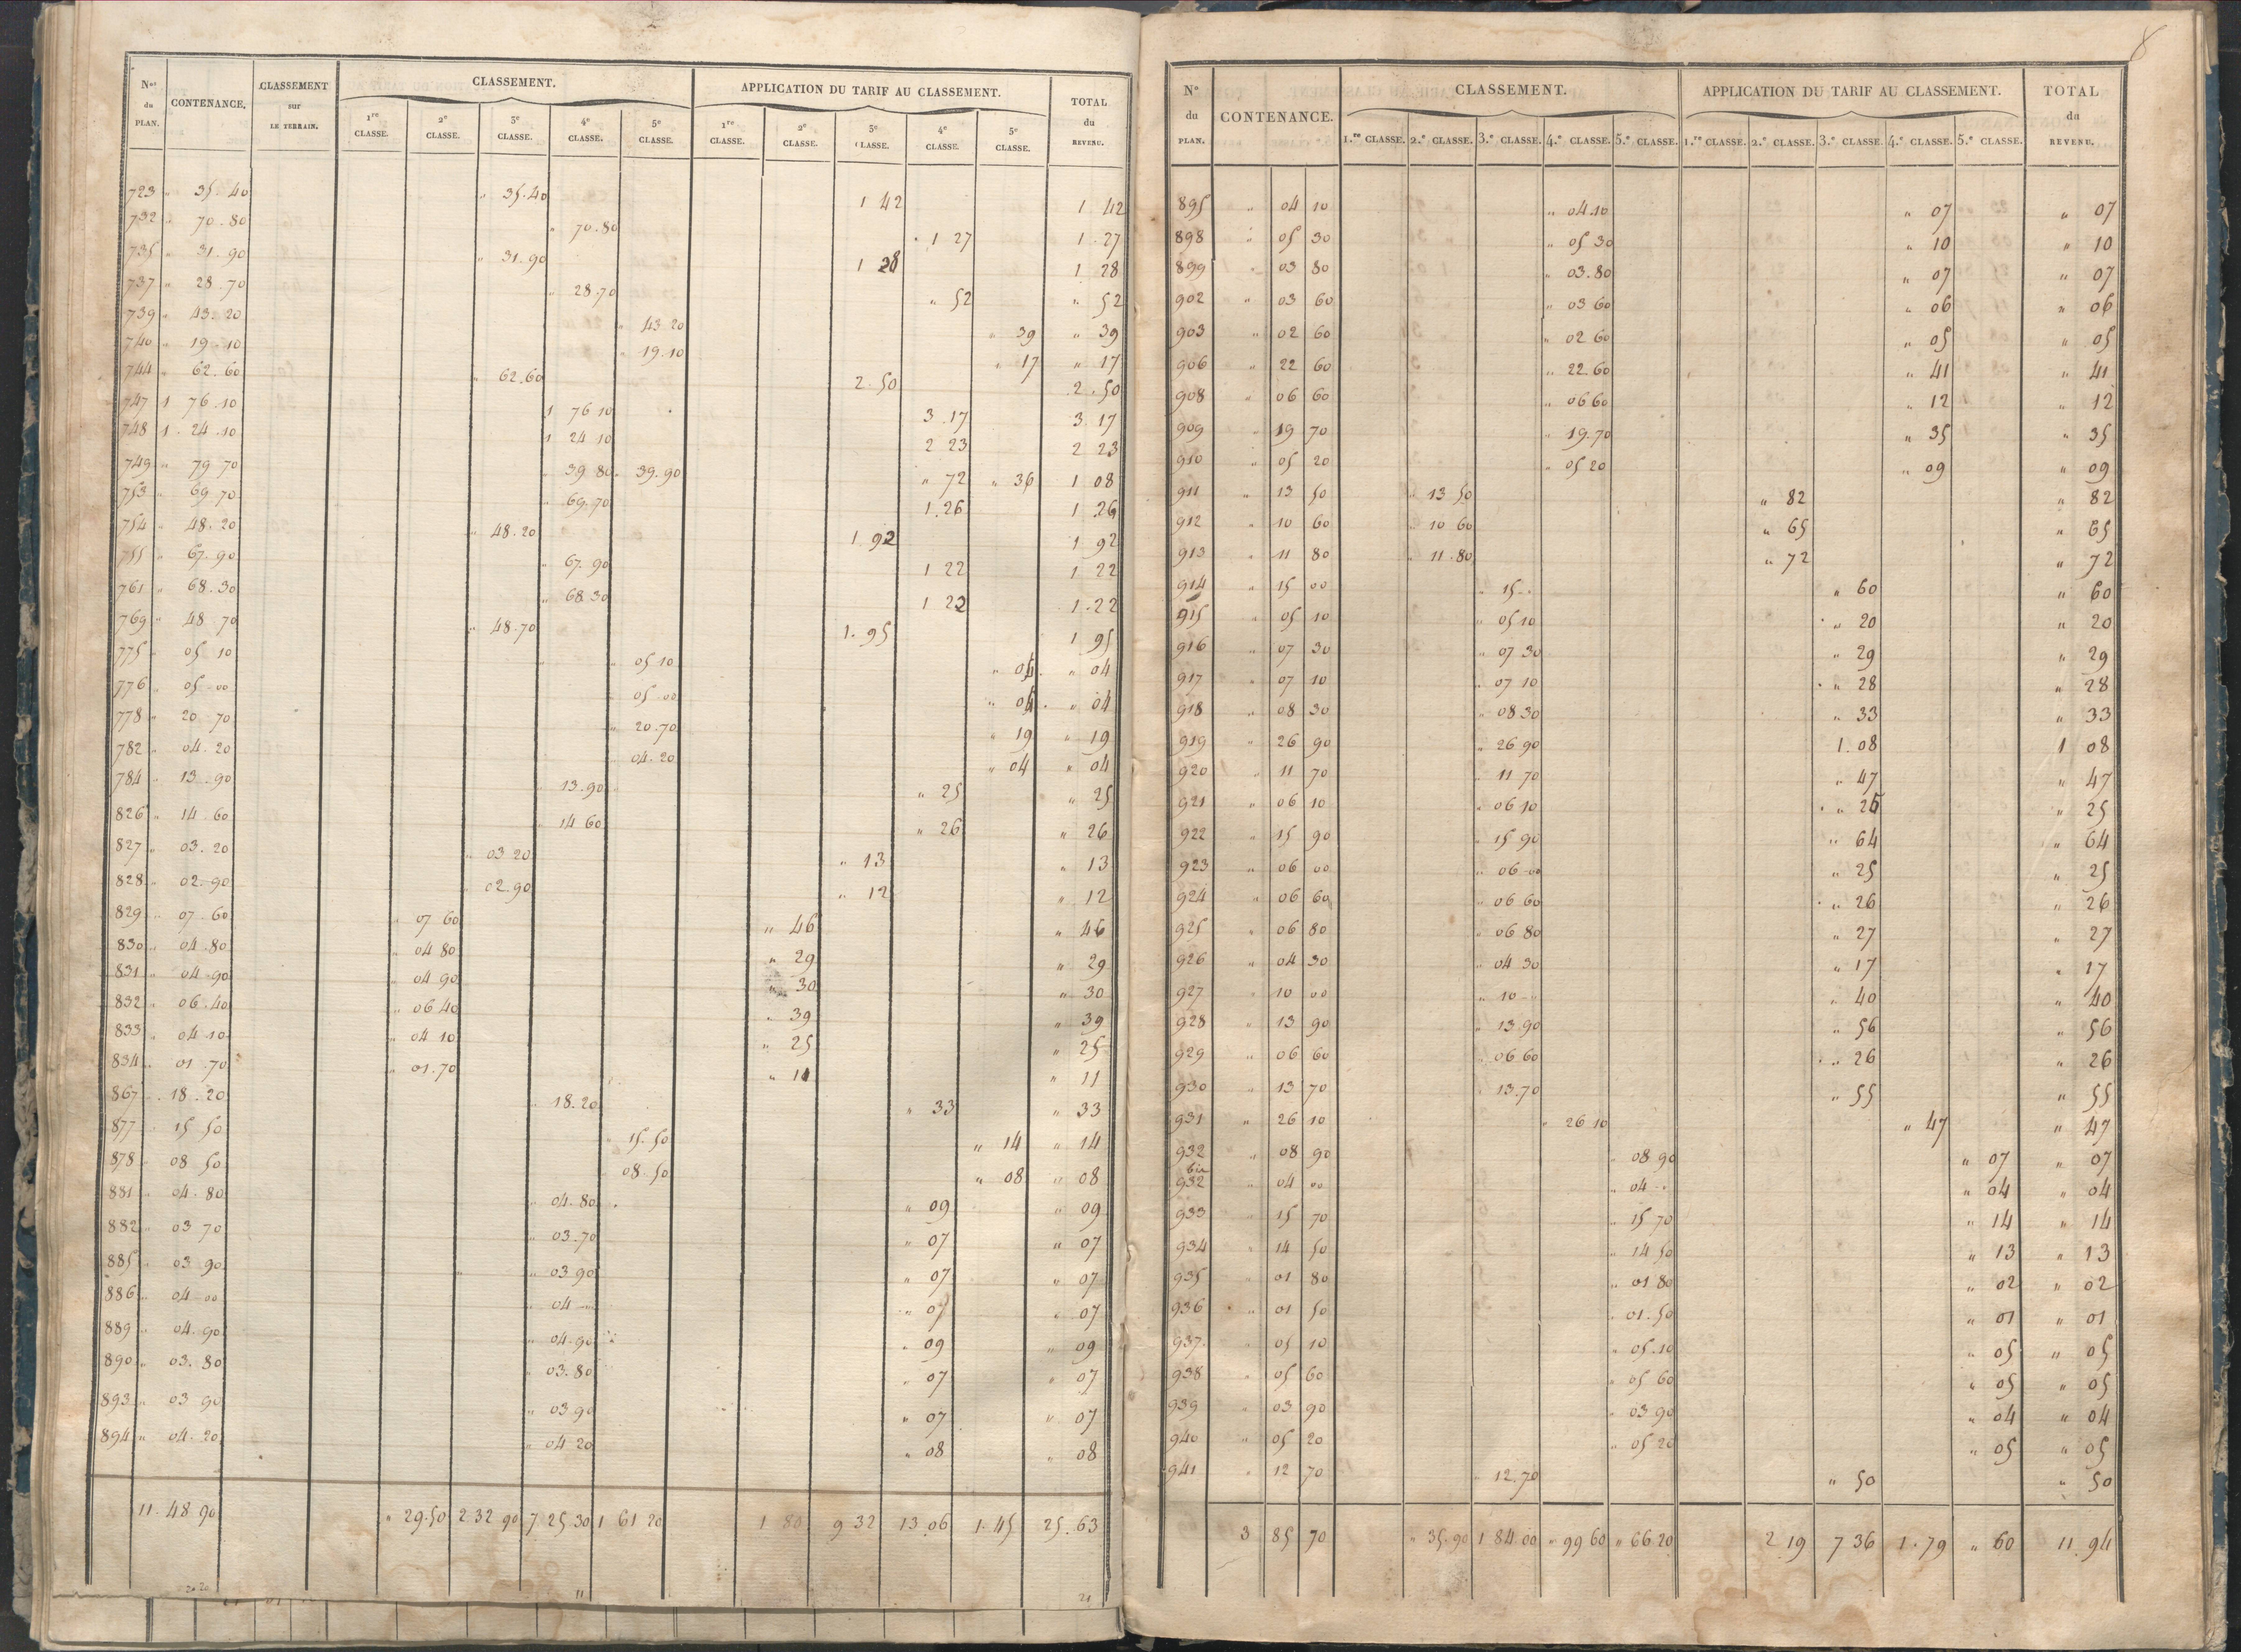 8
Nos du PLAN. CONTENANCE. CLASSEMENT sur LE TERRAIN. CLASSEMENT. APPLICATION DU TARIF AU CLASSEMENT. TOTAL du REVENU.
1re CLASSE. 2e CLASSE. 3e CLASSE. 4e CLASSE. 5e CLASSE. 1re CLASSE. 2e CLASSE. 3e CLASSE. 4e CLASSE. 5e CLASSE.
723 " 35.40 " 35.40 1 42 1 42
732 " 70.80 " 70.80 1 27 1.27
735 " 31.90 " 31.90 1 28 1 28
737 " 28.70 " 28.70 " 52 " 52
739 " 43.20 " 43 20 " 39 " 39
740 " 19.10 " 19.10 " 17 " 17
744 " 62.60 " 62.60 2.50 2.50
747 1 76.10 1 76 10 3.17 3.17
748 1.24.10 1 24 10 2 23 2 23
749 " 79 70 " 39 80 " 39.90 " 72 " 36 1 08
753 " 69 70 " 69.70 1.26 1.26
754 " 48.20 " 48.20 1.92 1 92
755 " 67.90 " 67.90 1 22 1 22
761 " 68.30 " 68 30 1 22 1.22
769 " 48 70 " 48.70 1.95 1 95
775 " 05 10 " 05 10 " 04 " 04
776 " 05 00 " 05 00 " 04 " 04
778 " 20 70 " 20.70 " 19 " 19
782 " 04.20 " 04.20 " 04 " 04
784 " 13.90 " 13.90 " 25 " 25
826 " 14.60 " 14 60 " 26 " 26
827 " 03.20 " 03 20 " 13 " 13
828 " 02.90 " 02.90 " 12 " 12
829 " 07.60 " 07 60 " 46 " 46
830 " 04.80 " 04 80 " 29 " 29
831 " 04.90 " 04 90 " 30 " 30
832 " 06.40 " 06 40 " 39 " 39
833 " 04 10 " 04 10 " 25 " 25
834 " 01.70 " 01.70 " 11 " 11
867 " 18.20 " 18.20 " 33 " 33
877 " 15 50 " 15.50 " 14 " 14
878 " 08 50 " 08.50 " 08 " 08
881 " 04.80 " 04.80 " 09 " 09
882 " 03 70 " 03.70 " 07 " 07
885 " 03 90 " 03 90 " 07 " 07
886 " 04 00 " 04 " " 07 " 07
889 " 04.90 " 04.90 " 09 " 09
890 " 03.80 " 03.80 " 07 " 07
893 " 03 90 " 03 90 " 07 " 07
894 " 04.20 " 04 20 " 08 " 08
11.48.90 " 29.50 2 32 90 7 25 30 1 61 20 1 80 9 32 13.06 1.45 25.63
No du PLAN. CONTENANCE. CLASSEMENT. APPLICATION DU TARIF AU CLASSEMENT. TOTAL du REVENU.
1.re CLASSE. 2.e CLASSE. 3.e CLASSE. 4.e CLASSE. 5.e CLASSE. 1.re CLASSE. 2.e CLASSE. 3.e CLASSE. 4.e CLASSE. 5.e CLASSE.
895 " 04 10 " 04.10 " 07 " 07
898 " 05 30 " 05 30 " 10 " 10
899 " 03 80 " 03.80 " 07 " 07
902 " 03 60 " 03 60 " 06 " 06
903 " 02 60 " 02 60 " 05 " 05
906 " 22 60 " 22.60 " 41 " 41
908 " 06 60 " 06 60 " 12 " 12
909 " 19 70 " 19.70 " 35 " 35
910 " 05 20 " 05 20 " 09 " 09
911 " 13 50 " 13 50 " 82 " 82
912 " 10 60 " 10 60 " 65 " 65
913 " 11 80 " 11.80 " 72 " 72
914 " 15 00 " 15 " " 60 " 60
915 " 05 10 " 05 10 " 20 " 20
916 " 07 30 " 07 30 " 29 " 29
917 " 07 10 " 07 10 " 28 " 28
918 " 08 30 " 08 30 " 33 " 33
919 " 26 90 " 26 90 1.08 1 08
920 " 11 70 " 11 70 " 47 " 47
921 " 06 10 " 06 10 " 25 " 25
922 " 15 90 " 15 90 " 64 " 64
923 " 06 00 " 06 00 " 25 " 25
924 " 06 60 " 06 60 " 26 " 26
925 " 06 80 " 06 80 " 27 " 27
926 " 04 30 " 04 30 " 17 " 17
927 " 10 00 " 10 " " 40 " 40
928 " 13 90 " 13.90 " 56 " 56
929 " 06 60 " 06 60 " 26 " 26
930 " 13 70 " 13.70 " 55 " 55
931 " 26 10 " 26 10 " 47 " 47
932 " 08 90 " 08 90 " 07 " 07
932 bis " 04 00 " 04 " " 04 " 04
933 " 15 70 " 15 70 " 14 " 14
934 " 14 50 " 14 50 " 13 " 13
935 " 01 80 " 01 80 " 02 " 02
936 " 01 50 " 01.50 " 01 " 01
937 " 05 10 " 05.10 " 05 " 05
938 " 05 60 " 05 60 " 05 " 05
939 " 03 90 " 03 90 " 04 " 04
940 " 05 20 " 05 20 " 05 " 05
941 " 12 70 " 12.70 " 50 " 50
3 85 70 " 35.90 1 84.00 " 99 60 " 66 20 2 19 7 36 1.79 " 60 11.94